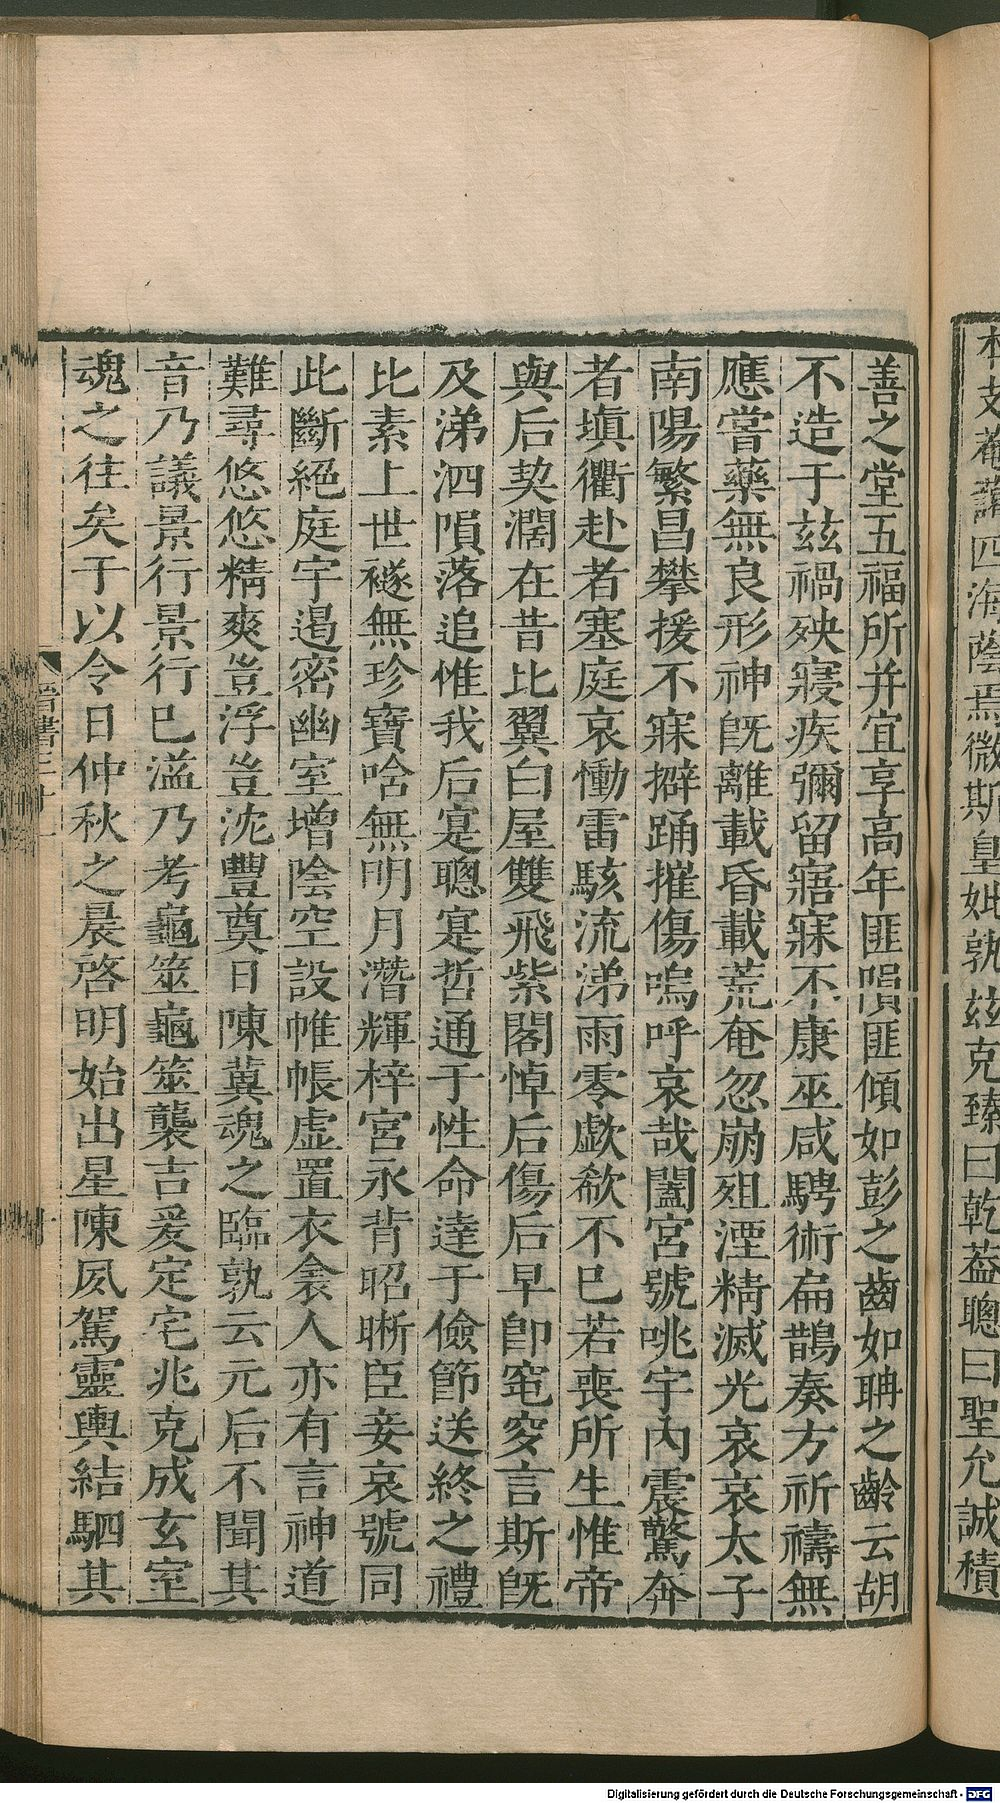 本支菴藹四海蔭焉微斯皇妣孰茲克臻曰乾蓋聰曰聖允誠積
善之堂五福所并宜享高年匪隕匪傾如彭之齒如聃之齡云胡
不造于茲禍殃寢疾彌留寤寐不康巫咸騁術扁鵲奏方祈禱無
應嘗藥無良形神旣離載昏載荒奄忽崩殂湮精滅光哀哀太子
南陽繁昌攀援不寐擗踊摧傷嗚呼哀哉闔宮號咷宇內震驚奔
者塡衢赴者塞庭哀慟雷駭流涕雨零歔欷不已若喪所生惟帝
與后契濶在昔比翼白屋雙飛紫閣悼后傷后早卽窀穸言斯旣
及涕泗隕落追惟我后寔聰寔哲通于性命達于儉節送終之禮
比素上世襚無珍寶唅無明月潛輝梓宮永背昭晣臣妾哀號同
此斷絕庭宇遏密幽室增陰空設帷帳虛置衣衾人亦有言神道
難尋悠悠精爽豈浮豈沈豐奠日陳冀魂之臨孰云元后不聞其
音乃議景行景行已溢乃考龜筮龜筮襲吉爰定宅兆克成玄室
魂之往矣于以令日仲秋之晨啓明始出星陳夙駕靈輿結駟其
晉書三十一
Digitalisierung gefördert durch die Deutsche Forschungsgemeinschaft - DFG